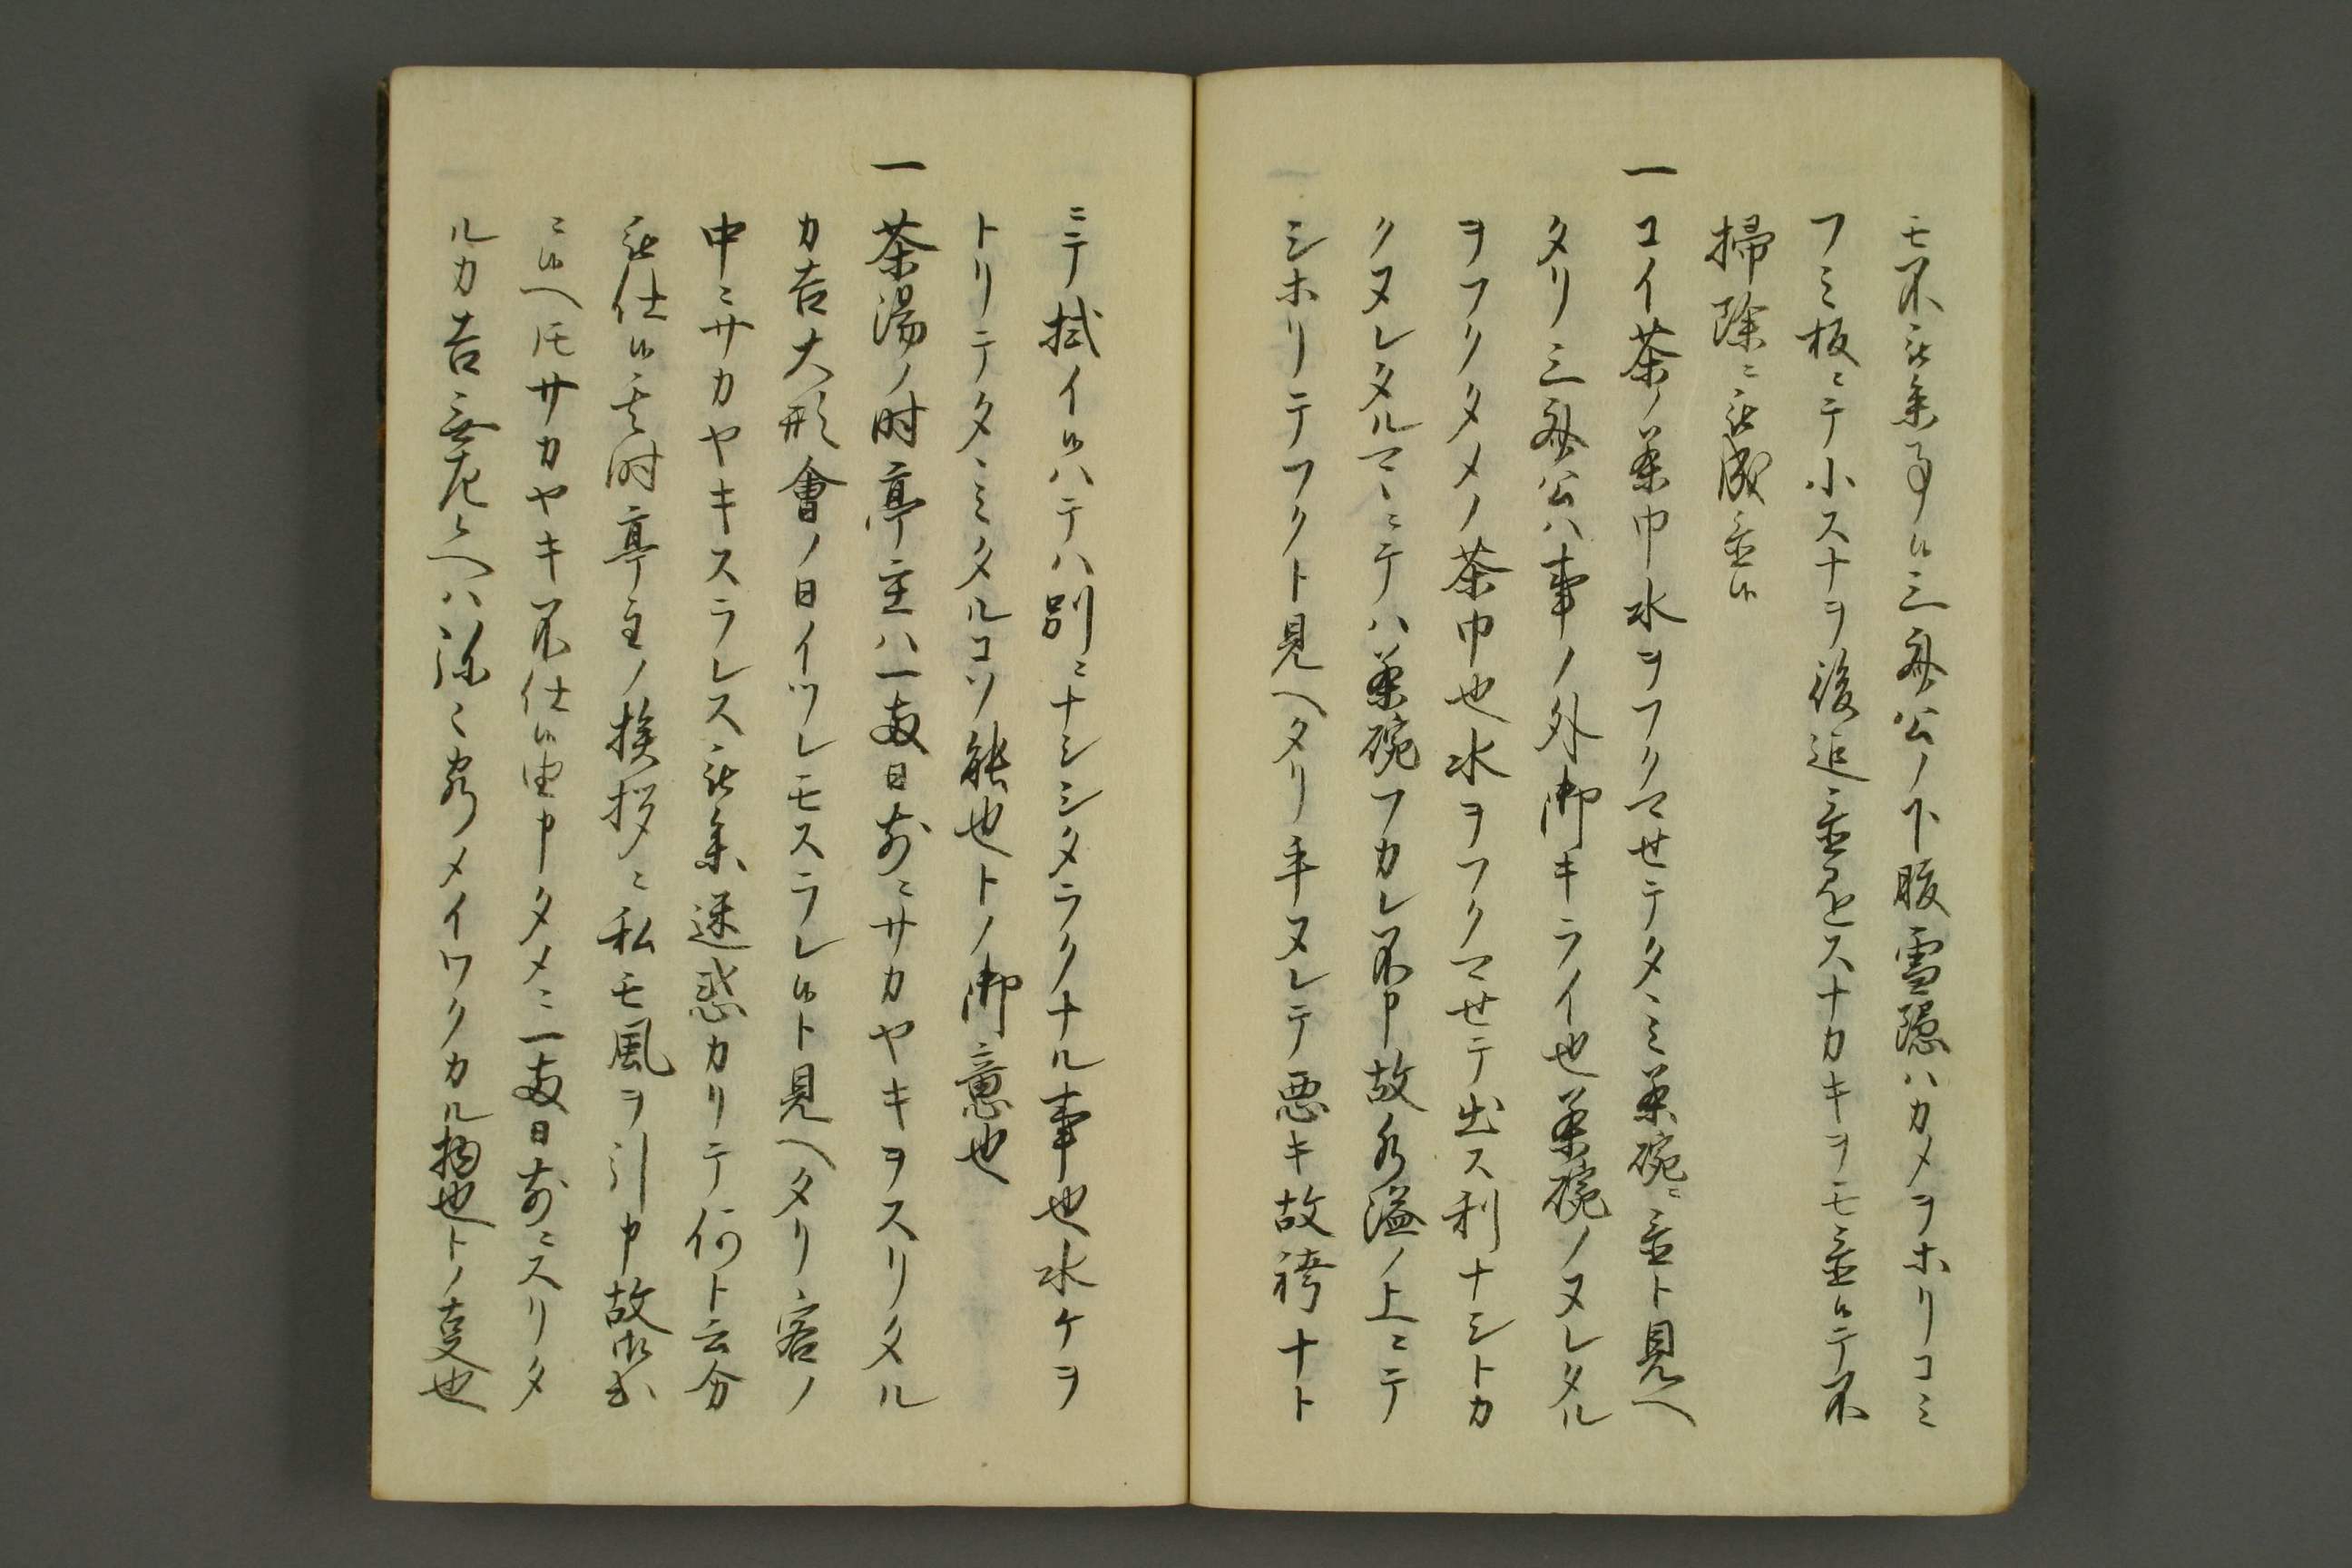 モ不被参事候三斎公ノ下腹雪隠ハカメヲホリコミ
フミ板ニテ小スナヲ後迄置スナカキヲモ置候テ不
掃除ニ被成置候
一コイ茶ノ茶巾水ヲフクマセテタヽミ茶碗ニ置ト見ヘ
タリ三斎公ハ事ノ外御キライ也茶碗ノヌレタル
ヲフクタメノ茶巾也水ヲフクマセテ出ス利ナシトカ
クヌレタルマヽニテハ茶碗フカレ不申故水溢ノ上ニテ
シホリテフクト見ヘタリ手ヌレテ悪キ故袴ナト
ニテ拭イ候ハテハ別ニナシシタラクナル事也水ケヲ
トリテタヽミタルコソ能也トノ御意也
一茶湯ノ時亭主ハ一両日前ニサカヤキヲスリタル
カ吉大形會ノ日イツレモスラレ候ト見ヘタリ客ノ
中ニサカヤキスラレス被参迷惑カリテ何ト云分
被仕候其時亭主ノ挨拶ニ私モ風ヲ引申故
ニ候ヘ𪜈サカヤキ不仕候由申タメニ一両日前ニスリタ
ルカ吉無左候ヘハ弥々客メイワクカル物也トノ事也